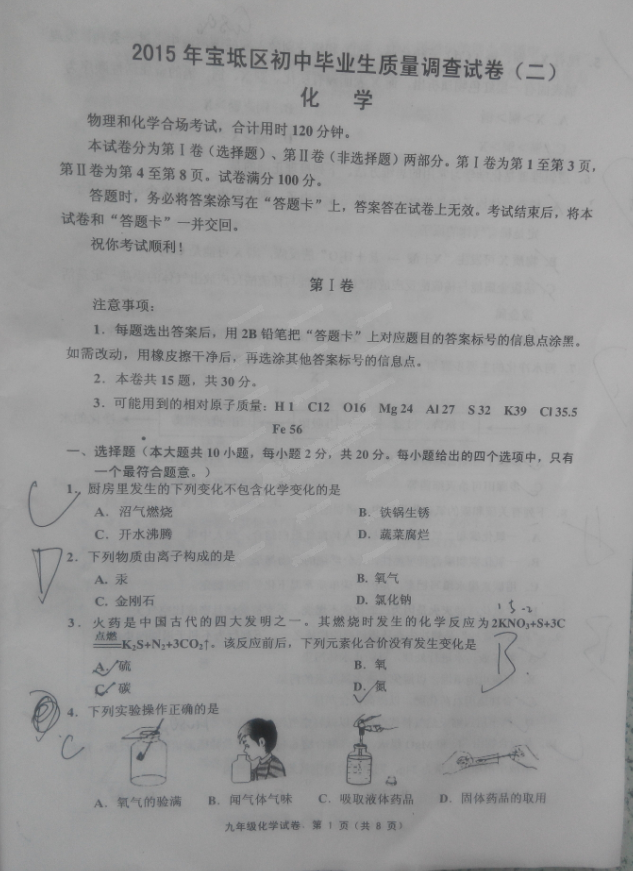 2015年宝坻区初中毕业生质量调查试卷（二）
化 学
物理和化学合场考试，合计用时120分钟。
本试卷分为第Ⅰ卷（选择题）、第Ⅱ卷（非选择题）两部分。第Ⅰ卷为第1至第3页，
第Ⅱ卷为第4至第8页。试卷满分100分。
答题时，务必将答案涂写在“答题卡”上，答案答在试卷上无效。考试结束后，将本
试卷和“答题卡”一并交回。
祝你考试顺利！
第Ⅰ卷
注意事项：
1．每题选出答案后，用2B铅笔把“答题卡”上对应题目的答案标号的信息点涂黑。
如需改动，用橡皮擦干净后，再选涂其他答案标号的信息点。
2．本卷共15题，共30分。
3．可能用到的相对原子质量：H 1 C12 O16 Mg 24 Al 27 S 32 K39 Cl 35.5
Fe 56
一、选择题（本大题共10小题，每小题2分，共20分。每小题给出的四个选项中，只有
一个最符合题意。）
C 1．厨房里发生的下列变化不包含化学变化的是
A．沼气燃烧 B．铁锅生锈
C．开水沸腾 D．蔬菜腐烂
D 2．下列物质由离子构成的是
A．汞 B．氧气
C．金刚石 D．氯化钠
3．火药是中国古代的四大发明之一。其燃烧时发生的化学反应为2KNO₃+S+3C
点燃
K₂S+N₂+3CO₂↑。该反应前后，下列元素化合价没有发生变化是
B
A．硫 B．氧
C．碳 D．氮
4．下列实验操作正确的是
C
A．氧气的验满 B．闻气体气味 C．吸取液体药品 D．固体药品的取用
九年级化学试卷 第1页（共8页）